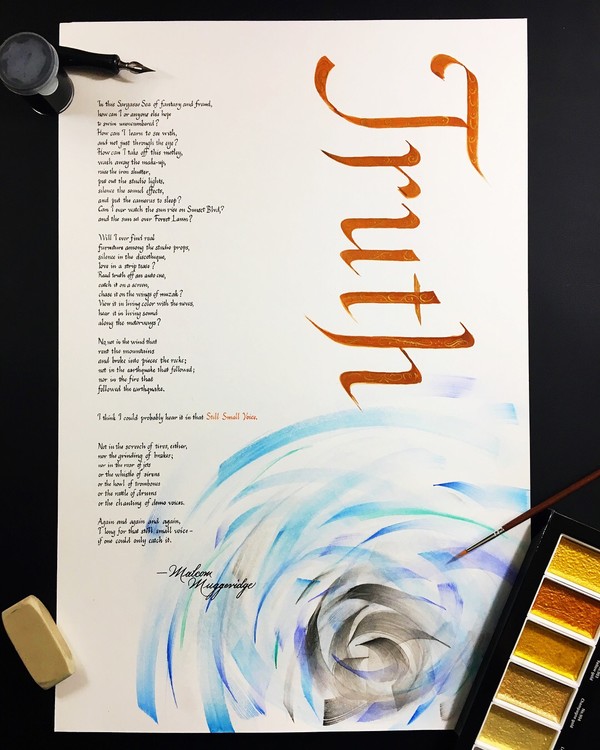 Truth
In this Sargasso Sea of fantasy and fraud,
how can I or anyone else hope
to swim unencumbered?
How can I learn to see with,
and not just through the eye?
How can I take off this motley,
wash away the make-up,
raise the iron shutter,
put out the studio lights,
silence the sound effects,
and put the cameras to sleep?
Can I ever watch the sun rise on Sunset Blvd,?
and the sun set over Forest Lawn?
Will I ever find real
furniture among the studio props,
silence in the discotheque,
love in a strip tease?
Read truth off an autocue,
catch it on a screen,
chase it on the wings of muzak?
View it in living color with the news,
hear it in living sound
along the motorways?
No, not in the wind that
rent the mountains
and broke into pieces the rocks;
not in the earthquake that followed;
nor in the fire that
followed the earthquake.
I think I could probably hear it in that Still Small Voice.
Not in the screech of tires, either,
nor the grinding of brakes;
nor in the roar of jets
or the whistle of sirens
or the howl of trombones
or the rattle of drums
or the chanting of demo voices.
Again and again and again,
I long for that still small voice –
if one could only catch it.
— Malcom
Muggeridge
Champagne gold